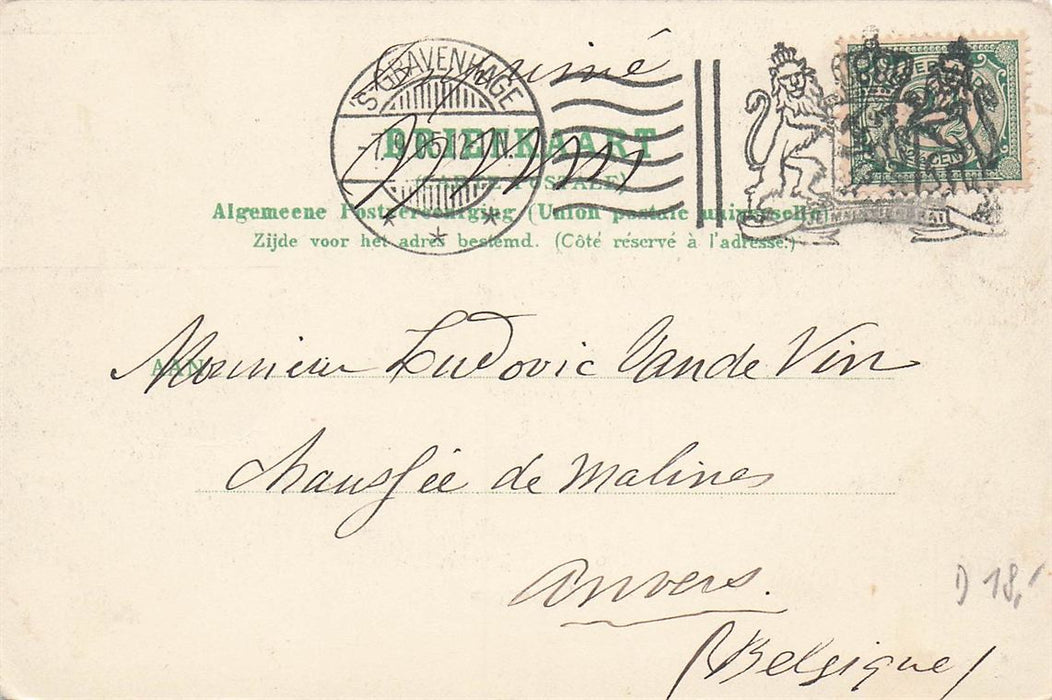 Imprimé
'S-GRAVENHAGE
7.9.05.12-1N.
BRIEFKAART
(CARTE POSTALE)
Algemeene Postvereeniging (Union postale universelle)
Zijde voor het adres bestemd. (Côté réservé à l'adresse.)
JE MAINTIENDRAI
NEDERLAND
CENT
AAN Monsieur Ludovic Van de Vin
Chaussée de Malines
Anvers.
(Belgique)
D 18,